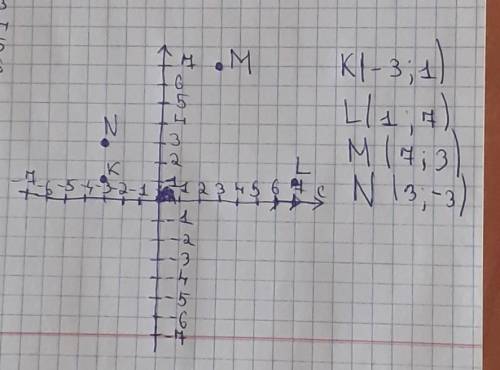 7 M K(-3;1)
6
5 L(1;7)
4
N 3 M(7;3)
2
K L
-7 -6 -5 -4 -3 -2 -1 1 1 2 3 4 5 6 7 N(3;-3)
-1
-2
-3
-4
-5
-6
-7